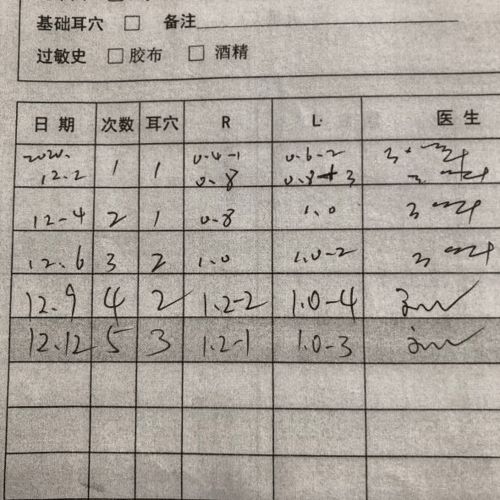 基础耳穴 □ 备注
过敏史 □ 胶布 □ 酒精
日期 次数 耳穴 R L 医生
2020. 0.4-1 0.6-2
12.2 1 1 0.8 0.8+3
12-4 2 1 0.8 1.0
12.6 3 2 1.0 1.0-2
12.9 4 2 1.2-2 1.0-4
12.12 5 3 1.2-1 1.0-3